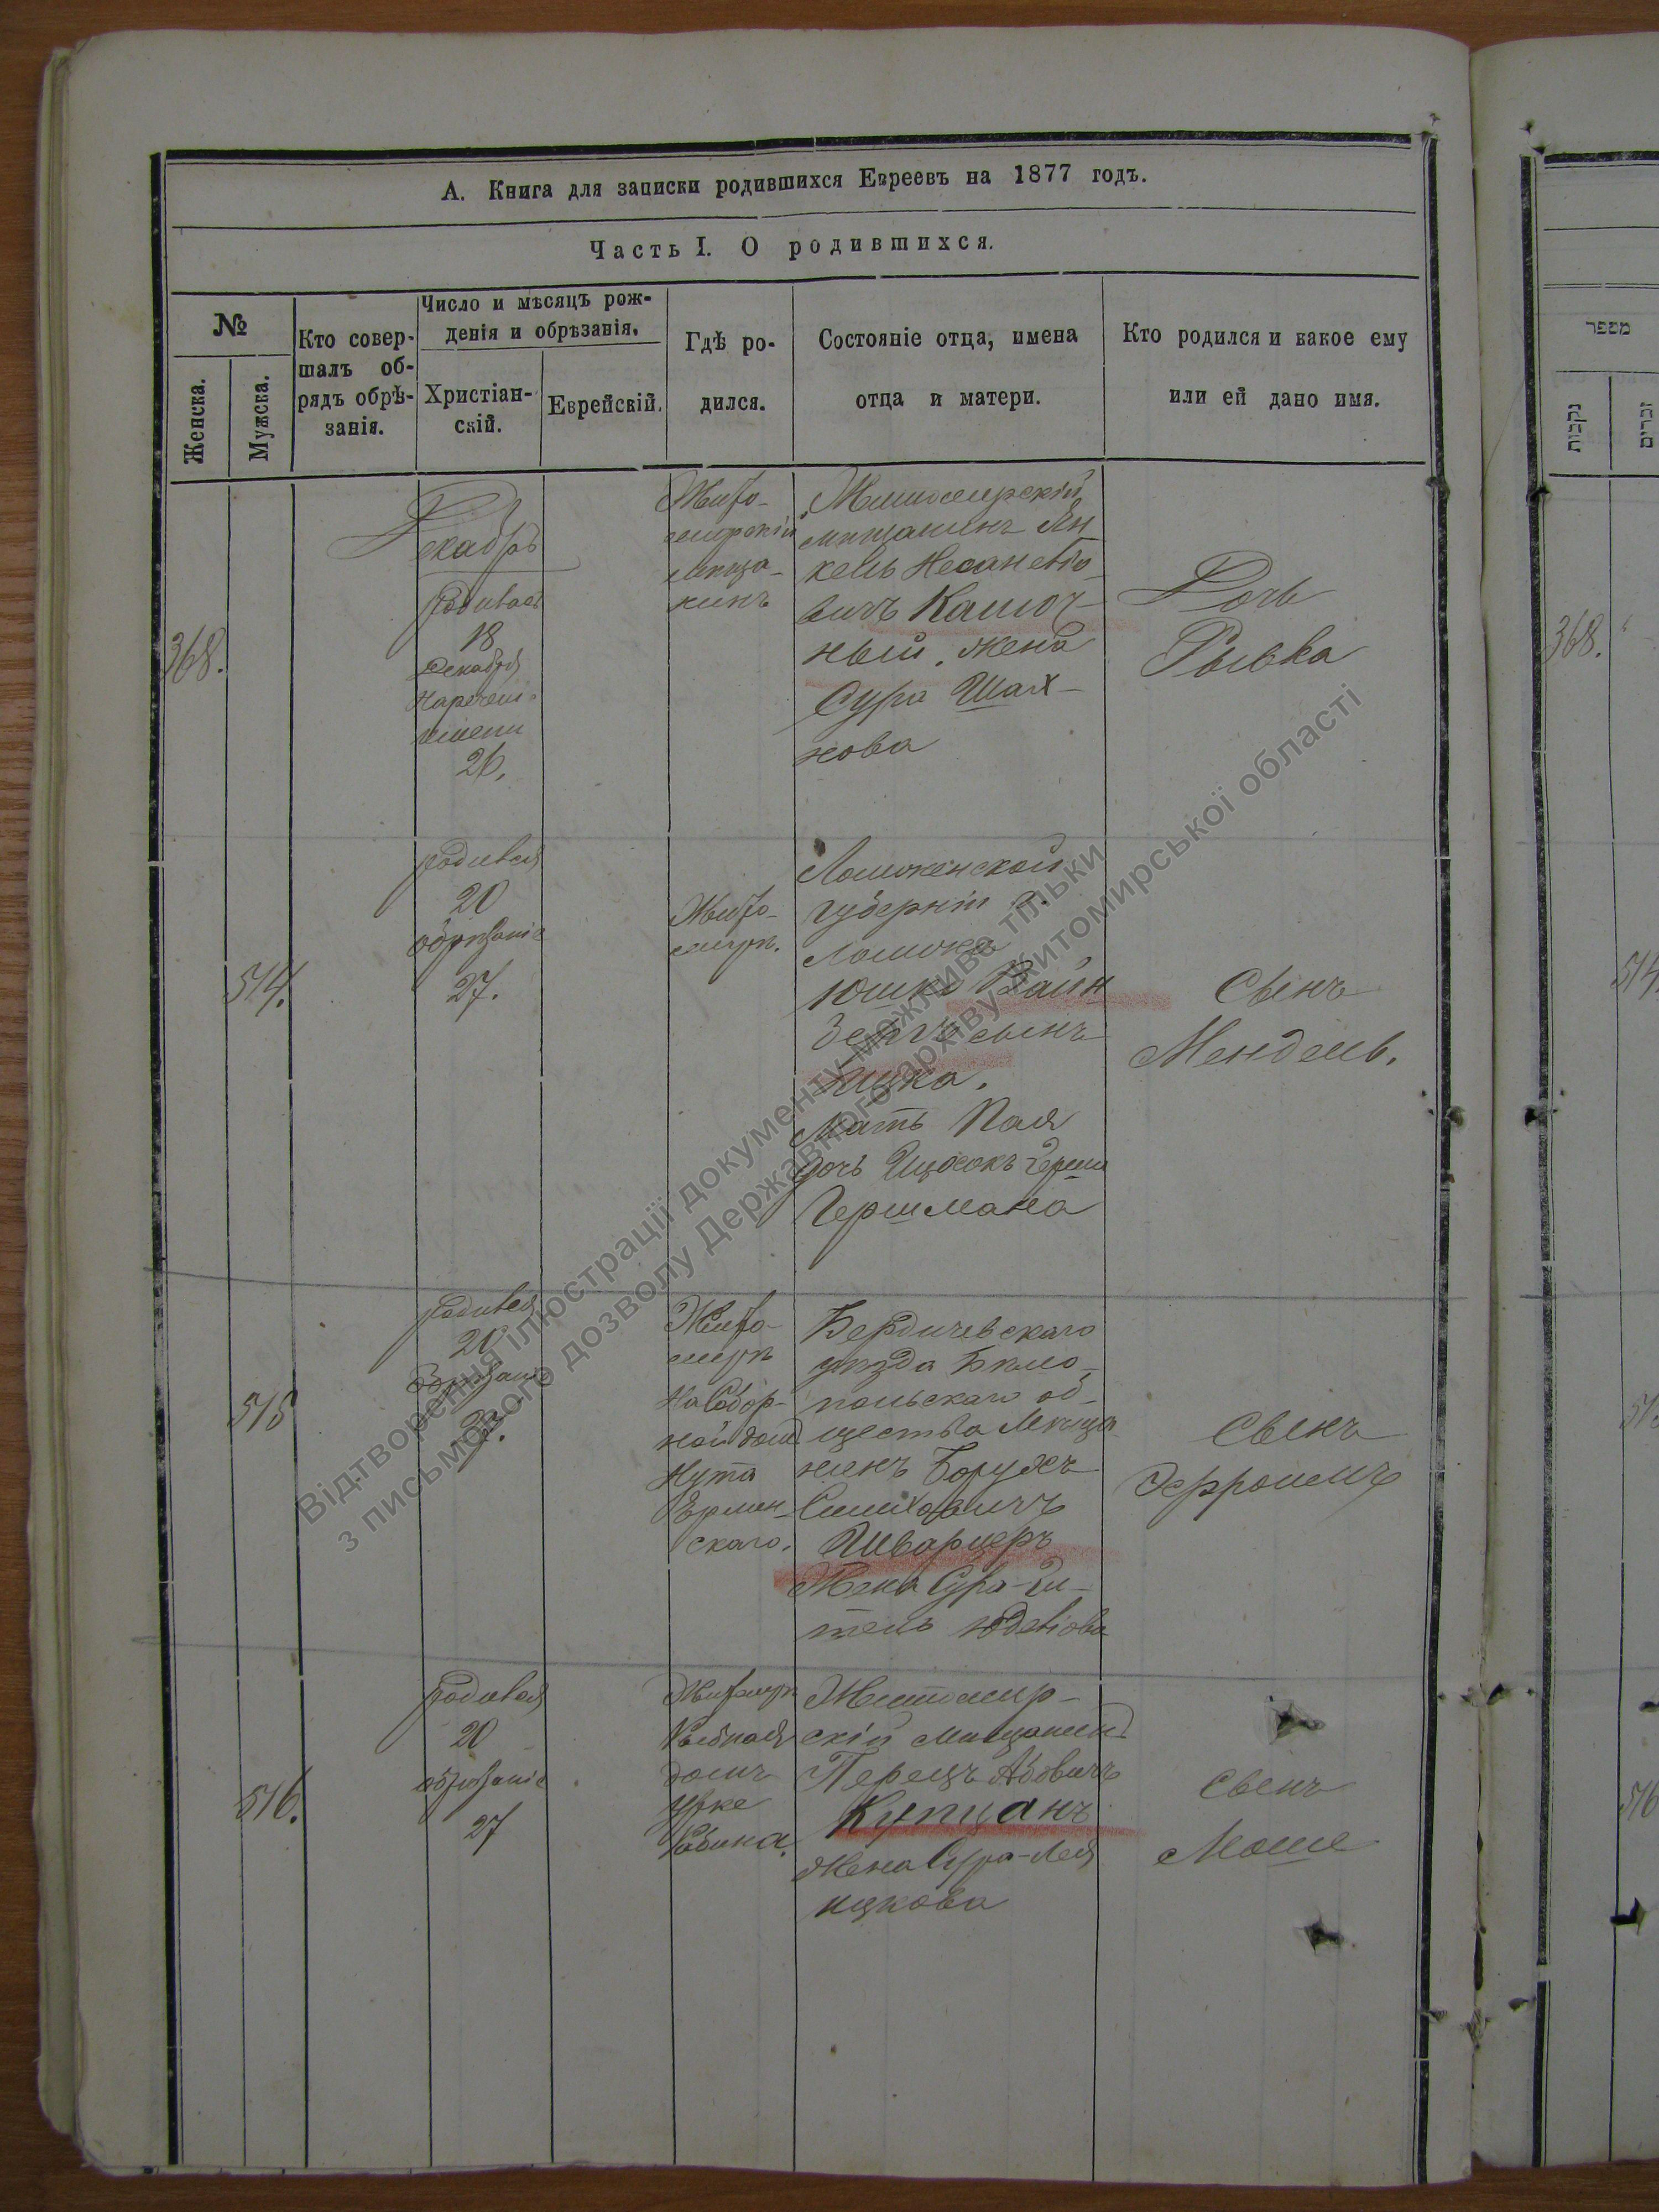 А. Книга для записки родившихся Евреевъ на 1877 годъ.
Часть I. О родившихся.
№
Женска.
Мужска.
Кто совер-
шалъ об-
рядъ обрѣ-
занія.
Число и мѣсяцъ рож-
денія и обрѣзанія.
Христіан-
скій.
Еврейскій.
Гдѣ ро-
дился.
Состояніе отца, имена
отца и матери.
Кто родился и какое ему
или ей дано имя.
368.
Декабрь
Родилась
18
Декабря
Наречені
имени
26.
Жито-
мирскій
меща-
нинъ
Житомирскій
мѣщанинъ Ян
кель
вичъ
ный. Жена
Сура Шах-
нова
Дочь
Рывка
514.
родился
20
обрѣзаніе
27.
Жито-
миръ.
Ломженской
губерніи г.
Ломжа
Юшко Вайн
сынъ
Ицка.
Мать
дочь Герша
Гершмана
Сынъ
Мендель.
515
родился
20
обрѣзаніе
27.
Жито-
миръ
На Собор-
ной домъ
Нута
скаго.
Бердичевскаго
уѣзда Бѣло-
польскаго об-
щества Мѣща
нинъ Борухъ
Симховичъ
Шварцеръ
Жена Сура-Ги-
тель
Сынъ
516.
родился
20
обрѣзаніе
27
Житомиръ
Рыбная
домъ
Житомир-
скій Мѣщанинъ
Перецъ Абовичъ
Купчанъ
Жена Сура-Лея
Ицкова
Сынъ
Моше
מספר
נקבות
זכרים
368.
514
515
516
Відтворення ілюстрації документу можливе тільки
з письмового дозволу Державного архіву Житомирської області